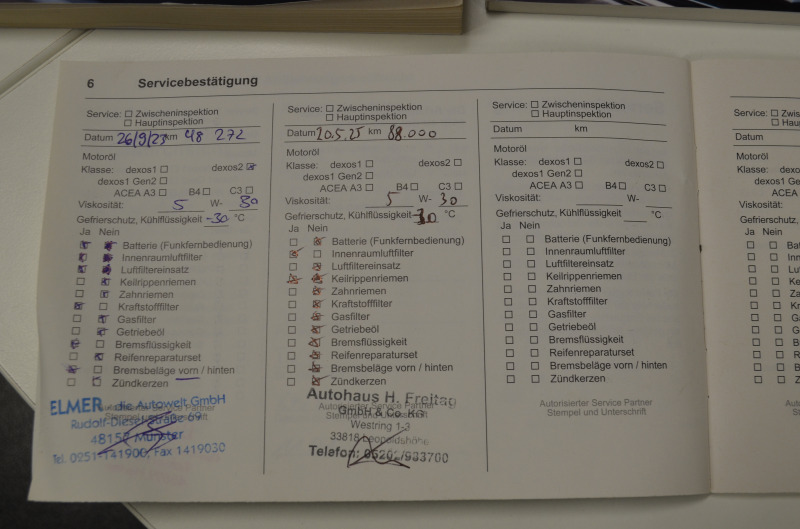 6 Servicebestätigung
Service: ☐ Zwischeninspektion
☐ Hauptinspektion
Datum 26/9/23 km 48 272
Motoröl
Klasse: dexos1 ☐ dexos2 ☒
dexos1 Gen2 ☐
ACEA A3 ☐ B4 ☐ C3 ☐
Viskosität: 5 W- 30
Gefrierschutz, Kühlflüssigkeit -30 °C
Ja Nein
Batterie (Funkfernbedienung)
Innenraumluftfilter
Luftfiltereinsatz
Keilrippenriemen
Zahnriemen
Kraftstofffilter
Gasfilter
Getriebeöl
Bremsflüssigkeit
Reifenreparaturset
Bremsbeläge vorn / hinten
Zündkerzen
Autorisierter Service Partner
Stempel und Unterschrift
ELMER die Autowelt GmbH
Rudolf-Diesel-Straße 69
48157 Münster
Tel. 0251-141900, Fax 1419030
Service: ☐ Zwischeninspektion
☐ Hauptinspektion
Datum 20.5.25 km 88.000
Motoröl
Klasse: dexos1 ☐ dexos2 ☐
dexos1 Gen2 ☐
ACEA A3 ☐ B4 ☐ C3 ☐
Viskosität: 5 W- 30
Gefrierschutz, Kühlflüssigkeit -30 °C
Ja Nein
☐ ☒ Batterie (Funkfernbedienung)
☒ ☐ Innenraumluftfilter
☐ ☒ Luftfiltereinsatz
☒ ☒ Keilrippenriemen
☐ ☒ Zahnriemen
☐ ☒ Kraftstofffilter
☐ ☒ Gasfilter
☐ ☒ Getriebeöl
☐ ☒ Bremsflüssigkeit
☐ ☒ Reifenreparaturset
☐ ☒ Bremsbeläge vorn / hinten
☐ ☒ Zündkerzen
Autorisierter Service Partner
Stempel und Unterschrift
Autohaus H. Freitag
GmbH & Co. KG
Westring 1-3
33818 Leopoldshöhe
Telefon: 05202/983700
Service: ☐ Zwischeninspektion
☐ Hauptinspektion
Datum km
Motoröl
Klasse: dexos1 ☐ dexos2 ☐
dexos1 Gen2 ☐
ACEA A3 ☐ B4 ☐ C3 ☐
Viskosität: W-
Gefrierschutz, Kühlflüssigkeit °C
Ja Nein
☐ ☐ Batterie (Funkfernbedienung)
☐ ☐ Innenraumluftfilter
☐ ☐ Luftfiltereinsatz
☐ ☐ Keilrippenriemen
☐ ☐ Zahnriemen
☐ ☐ Kraftstofffilter
☐ ☐ Gasfilter
☐ ☐ Getriebeöl
☐ ☐ Bremsflüssigkeit
☐ ☐ Reifenreparaturset
☐ ☐ Bremsbeläge vorn / hinten
☐ ☐ Zündkerzen
Autorisierter Service Partner
Stempel und Unterschrift
Service: ☐ Zwis
☐ Hau
Datum
Motoröl
Klasse: dexo
dexos1 Ge
ACEA
Viskosität:
Gefrierschutz,
Ja Nein